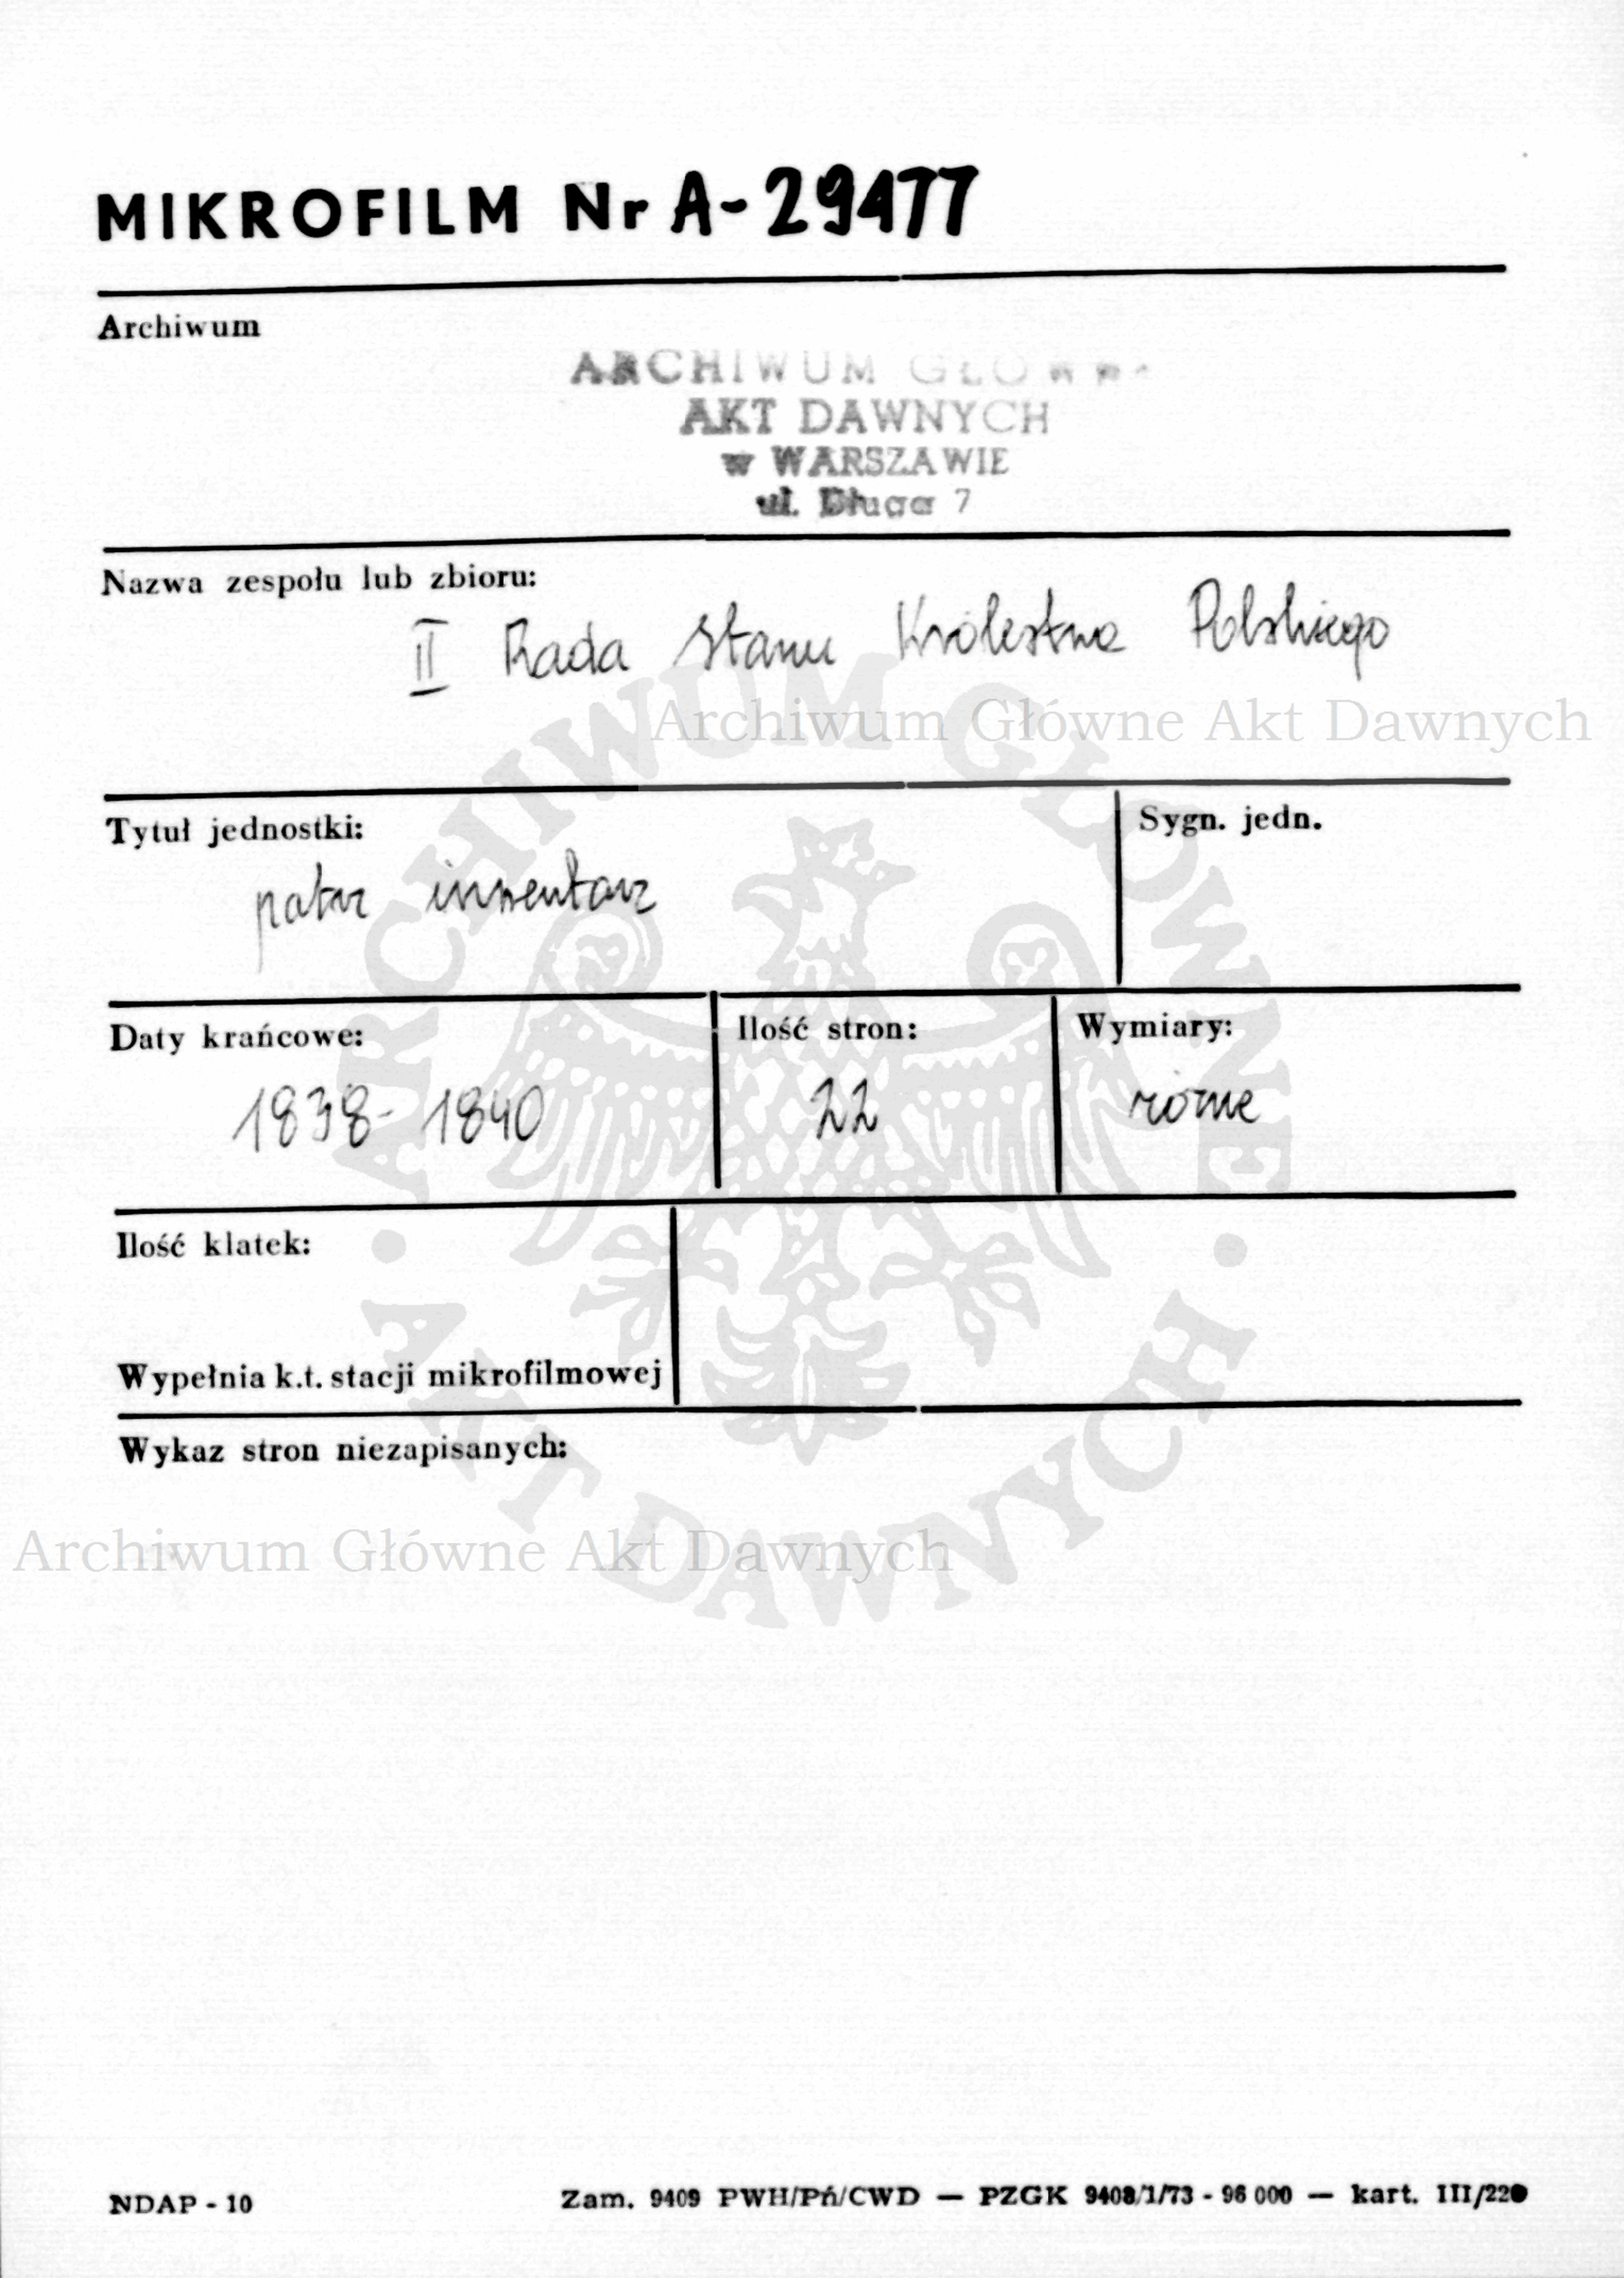 MIKROFILM Nr A-29477
Archiwum
ARCHIWUM GŁÓWNE
AKT DAWNYCH
w WARSZAWIE
ul. Długa 7
Nazwa zespołu lub zbioru:
II Rada Stanu Królestwa Polskiego
Archiwum Główne Akt Dawnych
Tytuł jednostki:
Sygn. jedn.
patrz inwentarz
Daty krańcowe:
Ilość stron:
Wymiary:
1838-1840
22
różne
Ilość klatek:
Wypełnia k.t. stacji mikrofilmowej
Wykaz stron niezapisanych:
Archiwum Główne Akt Dawnych
ARCHIWUM GŁÓWNE · AKT DAWNYCH ·
NDAP - 10
Zam. 9409 PWH/Pń/CWD — PZGK 9408/1/73 - 96 000 — kart. III/220